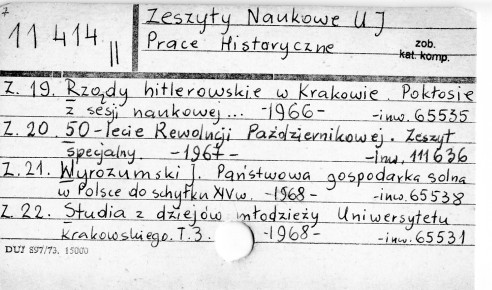 7
11 414 II
Zeszyty Naukowe UJ
Prace Historyczne
zob.
kat. komp.
Z. 19. Rządy hitlerowskie w Krakowie. Pokłosie
z sesji naukowej... -1966- -inw. 65535
Z. 20. 50-lecie Rewolucji Październikowej. Zeszyt
specjalny. -1967- -inw. 111636
Z. 21. Wyrozumski J. Państwowa gospodarka solna
w Polsce do schyłku XIV w. -1968- -inw. 65538
Z. 22. Studia z dziejów młodzieży Uniwersytetu
Krakowskiego. T.3. -1968- -inw. 65531
DUJ 897/73. 15000